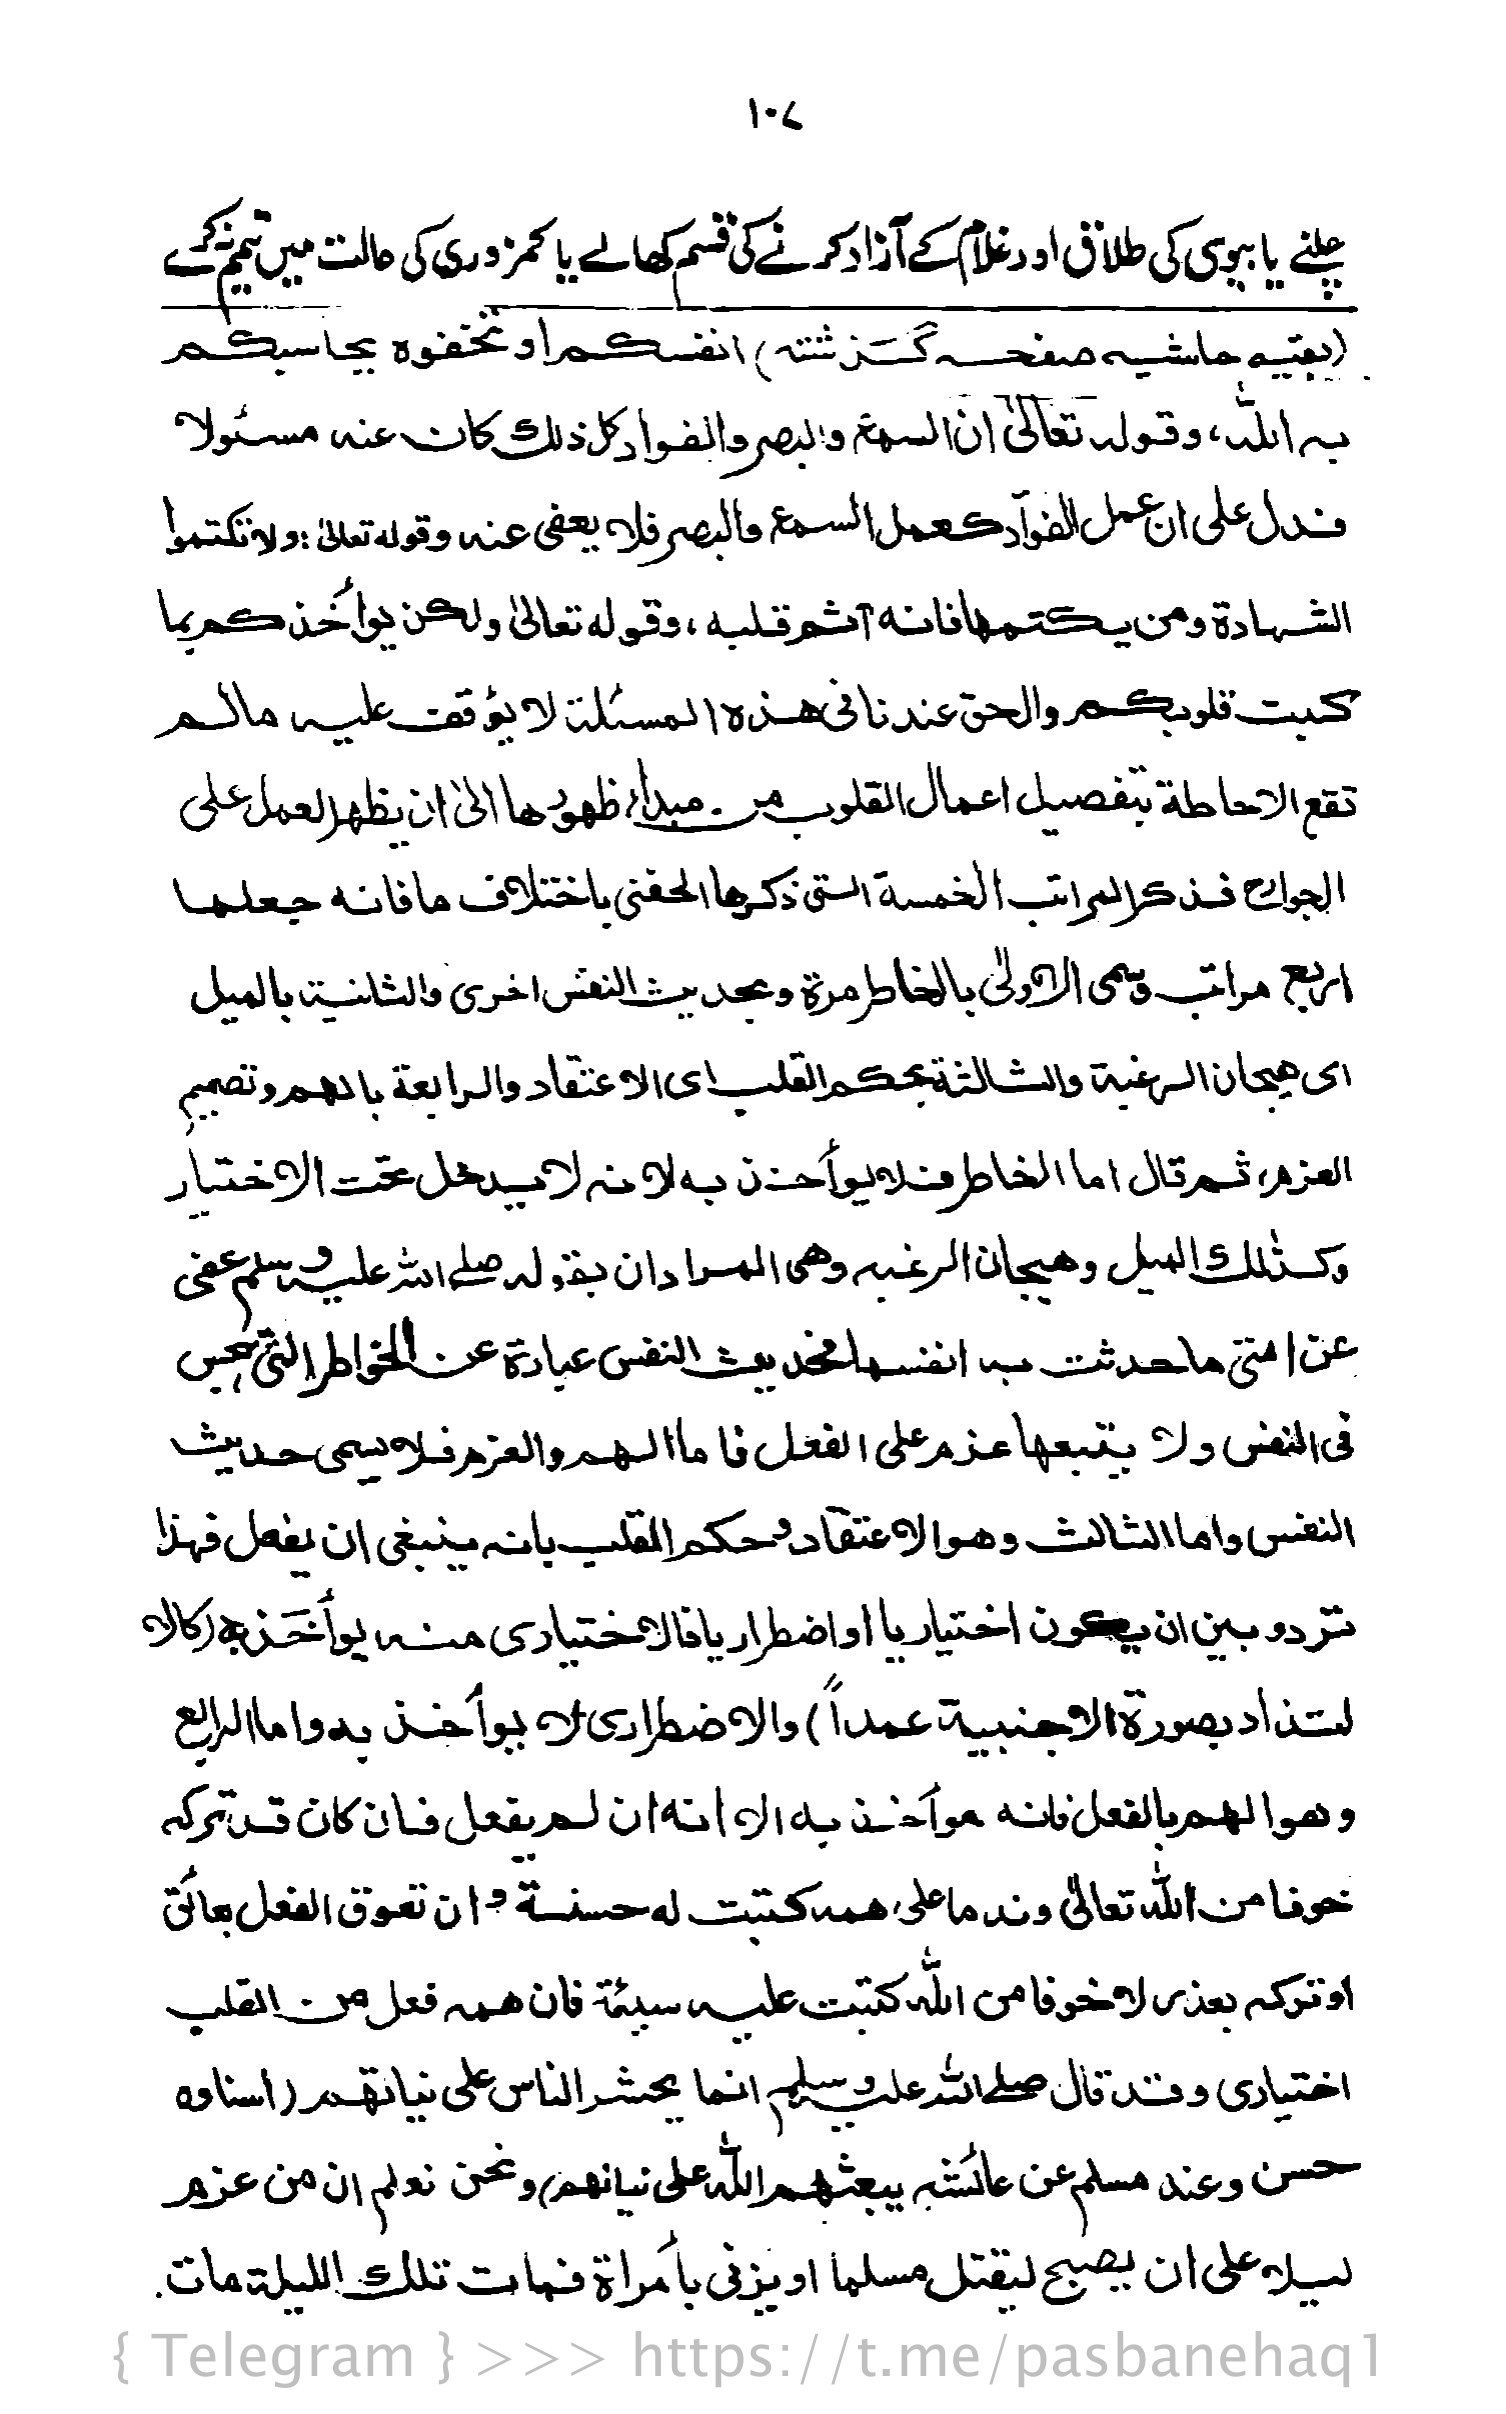 ۱۰۷
چلنے یا بیوی کی طلاق اور غلام کے آزاد کرنے کی قسم کھالے یا کمزوری کی حالت میں تیمم نہ کرے
(بقیہ حاشیہ صفحہ گزشتہ) انفسکم او تخفوہ یحاسبکم
بہ اللہ، وقولہ تعالیٰ ان السمع والبصر والفواد کل ذلك کان عنہ مسئولا
فدل علی ان عمل الفوآد کعمل السمع والبصر فلا یعفی عنہ وقوله تعالیٰ : ولا تکتموا
الشہادة ومن یکتمها فانه آثم قلبه ، وقوله تعالیٰ ولکن یوأخذکم بما
کسبت قلوبکم والحق عندنا فی هذه المسئلة لا یؤقف علیہ مالم
تقع الاحاطة بتفصیل اعمال القلوب من مبدأ ظهورها الیٰ ان یظهر العمل علی
الجوارح فذکر المراتب الخمسة التی ذکرها الحفنی باختلاف ما فانه جعلها
اربع مراتب وسمی الاولیٰ بالخاطر مرة وبحدیث النفس اخری والثانیة بالمیل
ای هیجان الرغبة والثالثة بحکم القلب ای الاعتقاد والرابعة بالهم وتصمیم
العزم، ثم قال اما الخاطر فلا یوأخذ به لانہ لا یدخل تحت الاختیار
وکذلك المیل وهیجان الرغبہ وهی المرادان بقولہ صلے اللہ علیہ وسلم عفی
عن امتی ما حدثت بہ انفسها فحدیث النفس عبارة عن الخواطر التی تهجس
فی النفس ولا یتبعها عزم علی الفعل فاما الهم والعزم فلا یسمی حدیث
النفس واما الثالث وهو الاعتقاد وحکم القلب بانہ ینبغی ان یفعل فهذا
تردد بین ان یکون اختیاریا او اضطراریا فالاختیاری منہ یوأخذ به (کالا
لتذاد بصورة الاجنبیة عمداً) والاضطراری لا یوأخذ به واما الرابع
وهو الهم بالفعل فانه موآخذ به الا انه ان لم یفعل فان کان قد ترکہ
خوفا من اللہ تعالیٰ وندما علی همہ کتبت له حسنة و ان تعوق الفعل بعائق
او ترکہ بعذر لا خوفا من اللہ کتبت علیہ سیئة فان همہ فعل من القلب
اختیاری وقد قال صلے اللہ علیہ وسلم انما یحشر الناس علی نیاتهم (اسناده
حسن وعند مسلم عن عائشہ یبعثهم اللہ علی نیاتهم) ونحن نعلم ان من عزم
لیلا علی ان یصبح لیقتل مسلما او یزنی بأمراة فمات تلك اللیلة مات.
{ Telegram } >>> https://t.me/pasbanehaq1